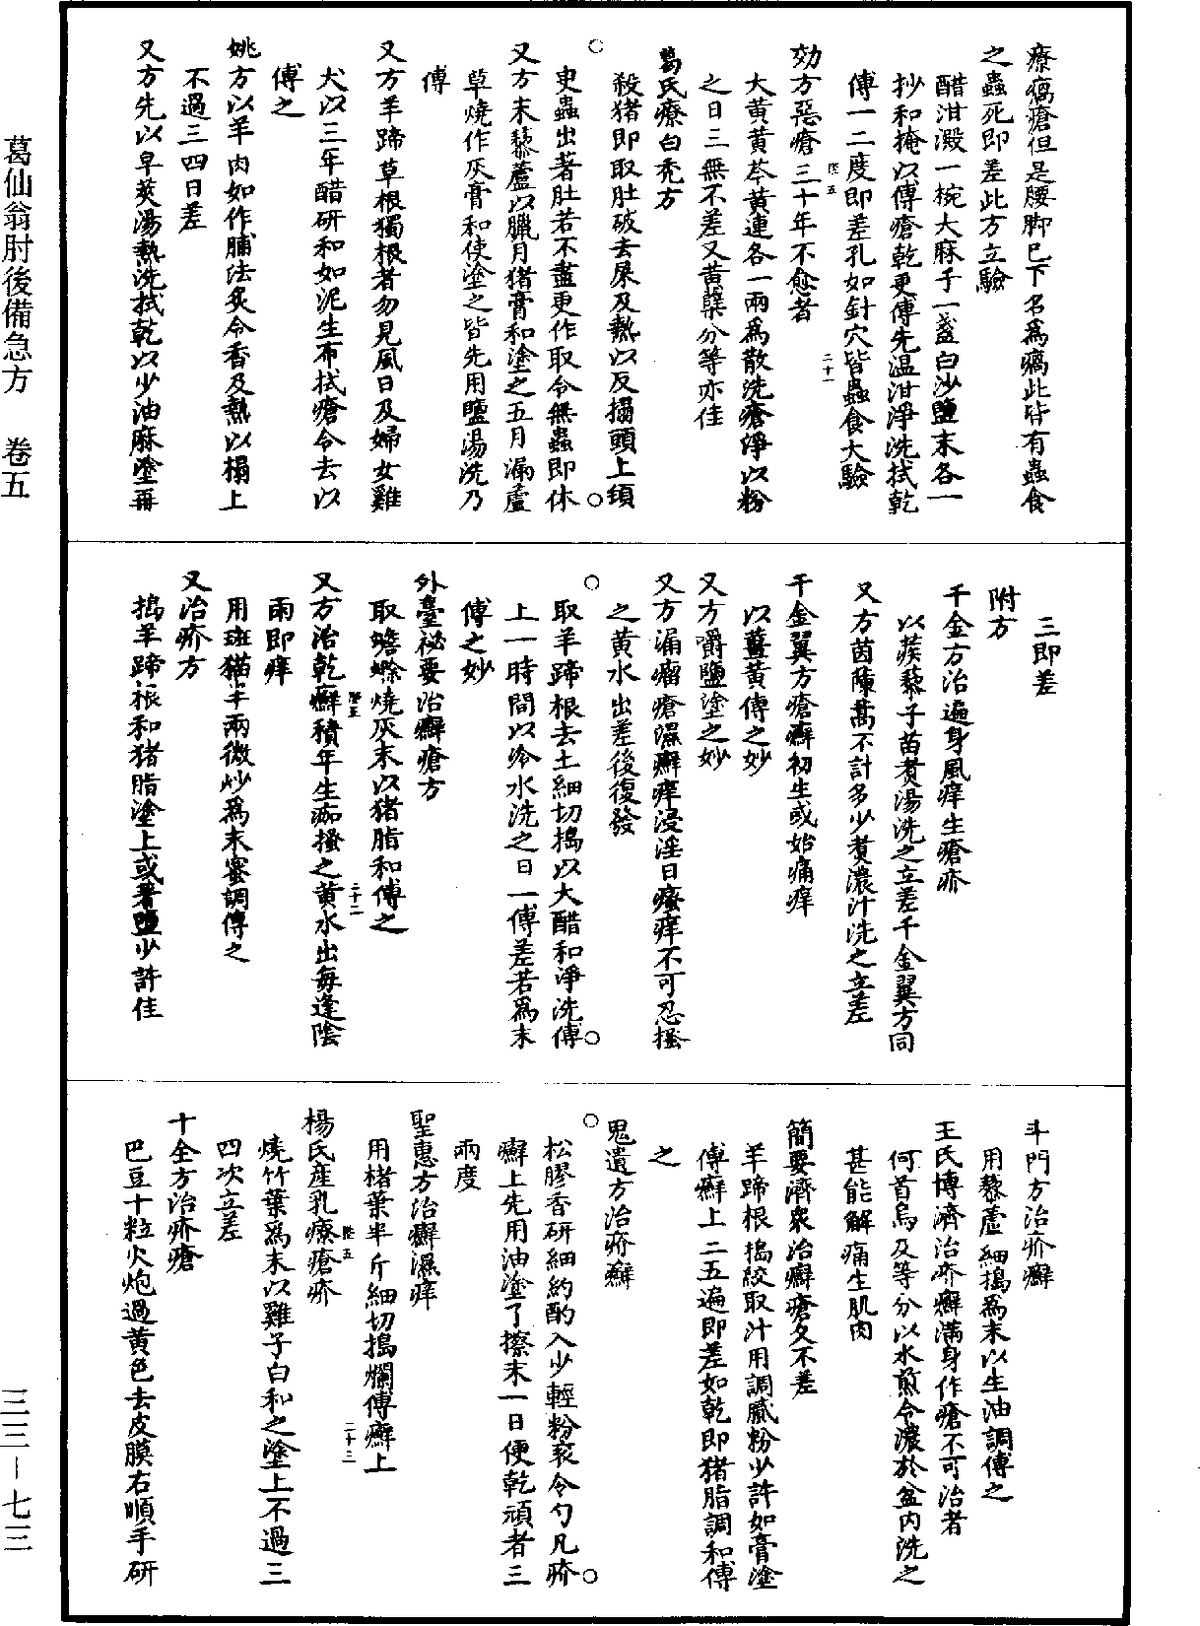 療瘑瘡但是腰脚已下名爲瘑此皆有蟲食
之蟲死即差此方立驗
醋泔澱一椀大麻子一盞白沙鹽末各一
抄和掩以傅瘡乾更傅先温泔淨洗拭乾
傅一二度即差孔如針穴皆蟲食大驗
効方惡瘡三十年不愈者
大黄黄芩黄連各一兩爲散洗瘡淨以粉
之日三無不差又黄蘗分等亦佳
葛氏療白禿方
殺猪即取肚破去屎及熱以反搨頭上須
臾蟲出著肚若不盡更作取令無蟲即休
又方末藜蘆以臘月猪膏和塗之五月漏蘆
草燒作灰膏和使塗之皆先用鹽湯洗乃
傅
又方羊蹄草根獨根者勿見風日及婦女雞
犬以三年醋研和如泥生布拭瘡令去以
傅之
姚方以羊肉如作脯法炙令香及熱以搨上
不過三四日差
又方先以皁莢湯熱洗拭乾以少油麻塗再
三即差
附方
千金方治遍身風痒生瘡疥
以蒺藜子苗煑湯洗之立差千金翼方同
又方茵蔯蒿不計多少煑濃汁洗之立差
千金翼方瘡癬初生或始痛痒
以薑黄傅之妙
又方嚼鹽塗之妙
又方漏瘤瘡濕癬痒浸淫日瘙痒不可忍搔
之黄水出差後復發
取羊蹄根去土細切搗以大醋和淨洗傅
上一時間以冷水洗之日一傅差若爲末
傅之妙
外臺祕要治癬瘡方
取蟾蜍燒灰末以猪脂和傅之
又方治乾癬積年生痂搔之黄水出每逢陰
雨即痒
用斑猫半兩微炒爲末蜜調傅之
又治疥方
搗羊蹄根和猪脂塗上或著鹽少許佳
斗門方治疥癬
用藜蘆細搗爲末以生油調傅之
王氏博濟治疥癬滿身作瘡不可治者
何首烏及等分以水煎令濃於盆内洗之
甚能解痛生肌肉
簡要濟衆治癬瘡久不差
羊蹄根搗絞取汁用調膩粉少許如膏塗
傅癬上二五遍即差如乾即猪脂調和傅
之
鬼遺方治疥癬
松膠香研細約酌入少輕粉衮令勻凡疥
癬上先用油塗了擦末一日便乾頑者三
兩度
聖惠方治癬濕痒
用楮葉半斤細切搗爛傅癬上
楊氏産乳療瘡疥
燒竹葉爲末以雞子白和之塗上不過三
四次立差
十全方治疥瘡
巴豆十粒火炮過黄色去皮膜右順手研
葛仙翁肘後備急方 卷五
三三－七三